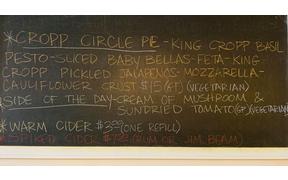 *CROPP CIRCLE PIE - KING CROPP BASIL
PESTO-SLICED BABY BELLAS-FETA-KING
CROPP PICKLED JALAPENOS-MOZZARELLA-
CAULIFLOWER CRUST $15 (GF) (VEGETARIAN)
SIDE OF THE DAY-CREAM OF MUSHROOM &
SUNDRIED TOMATO (GF) (VEGETARIAN)
*WARM CIDER $3.00 (ONE REFILL)
*SPIKED CIDER (RUM OR JIM BEAM)